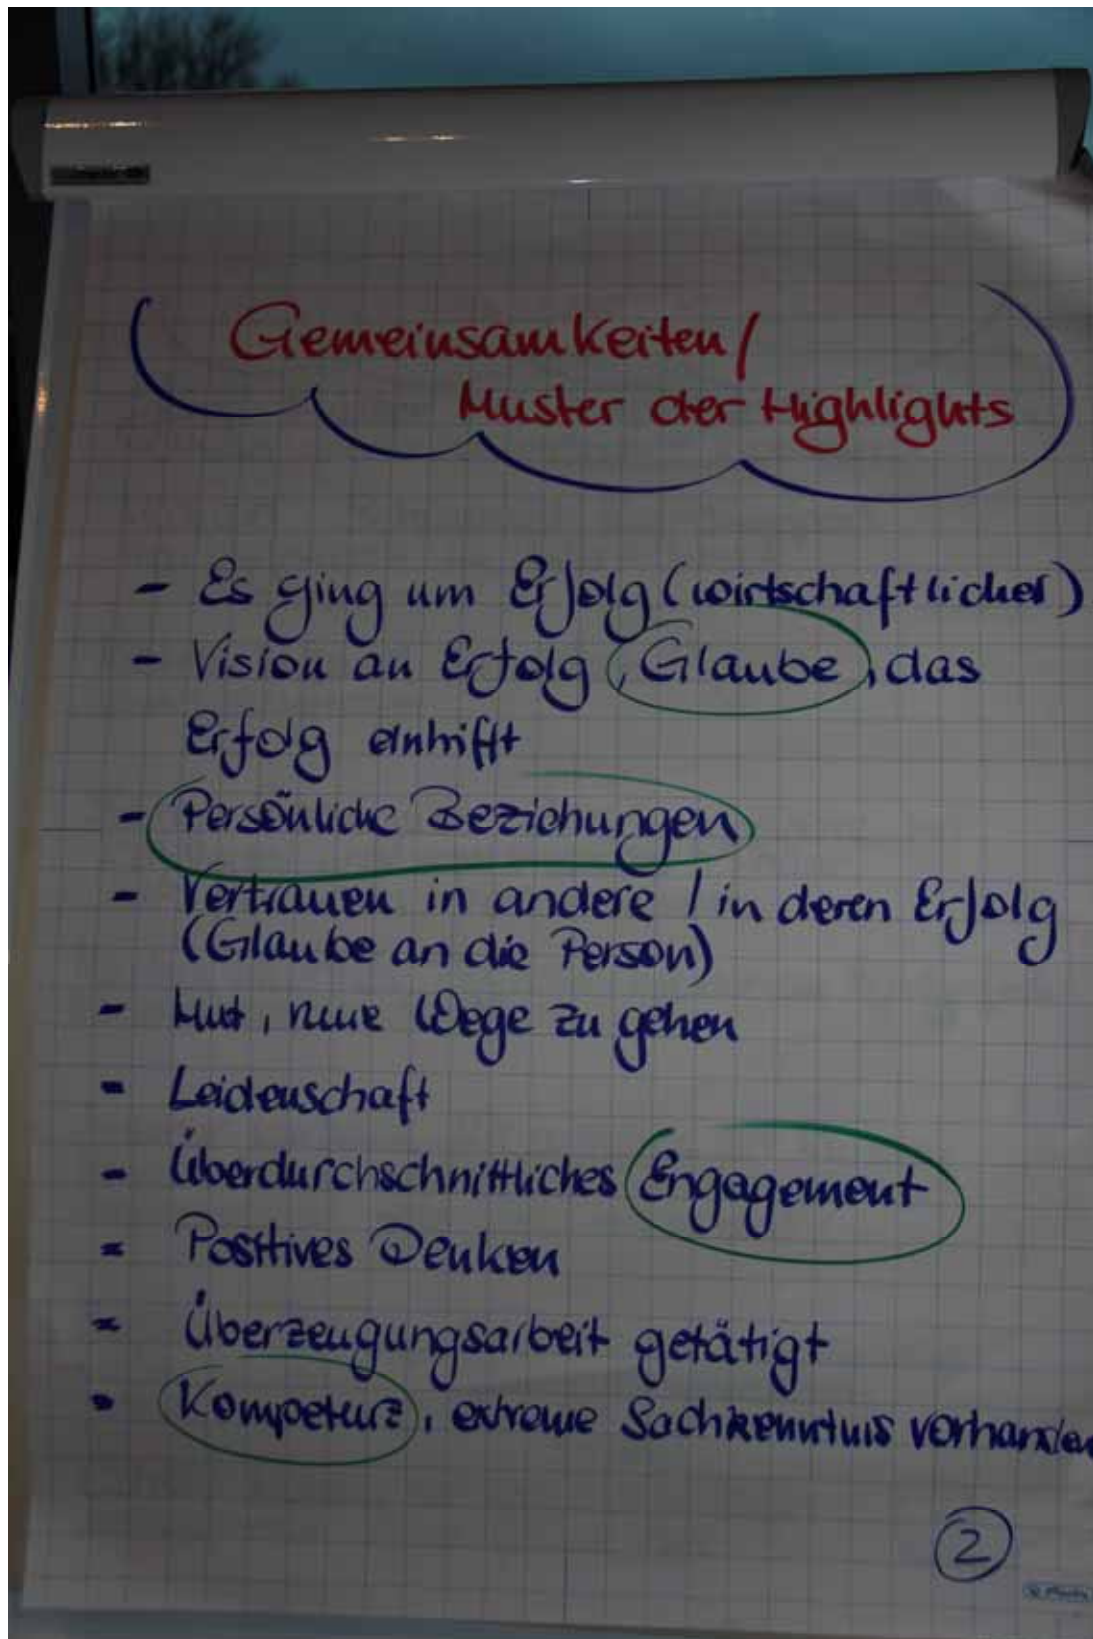 Gemeinsamkeiten/
Muster der Highlights
- Es ging um Erfolg (wirtschaftlicher)
- Vision an Erfolg, Glaube, das
Erfolg eintrifft
- Persönliche Beziehungen
- Vertrauen in andere / in deren Erfolg
(Glaube an die Person)
- Mut, neue Wege zu gehen
- Leidenschaft
- Überdurchschnittliches Engagement
- Positives Denken
- Überzeugungsarbeit getätigt
- Kompetenz, extreme Sachkenntnis vorhanden
2